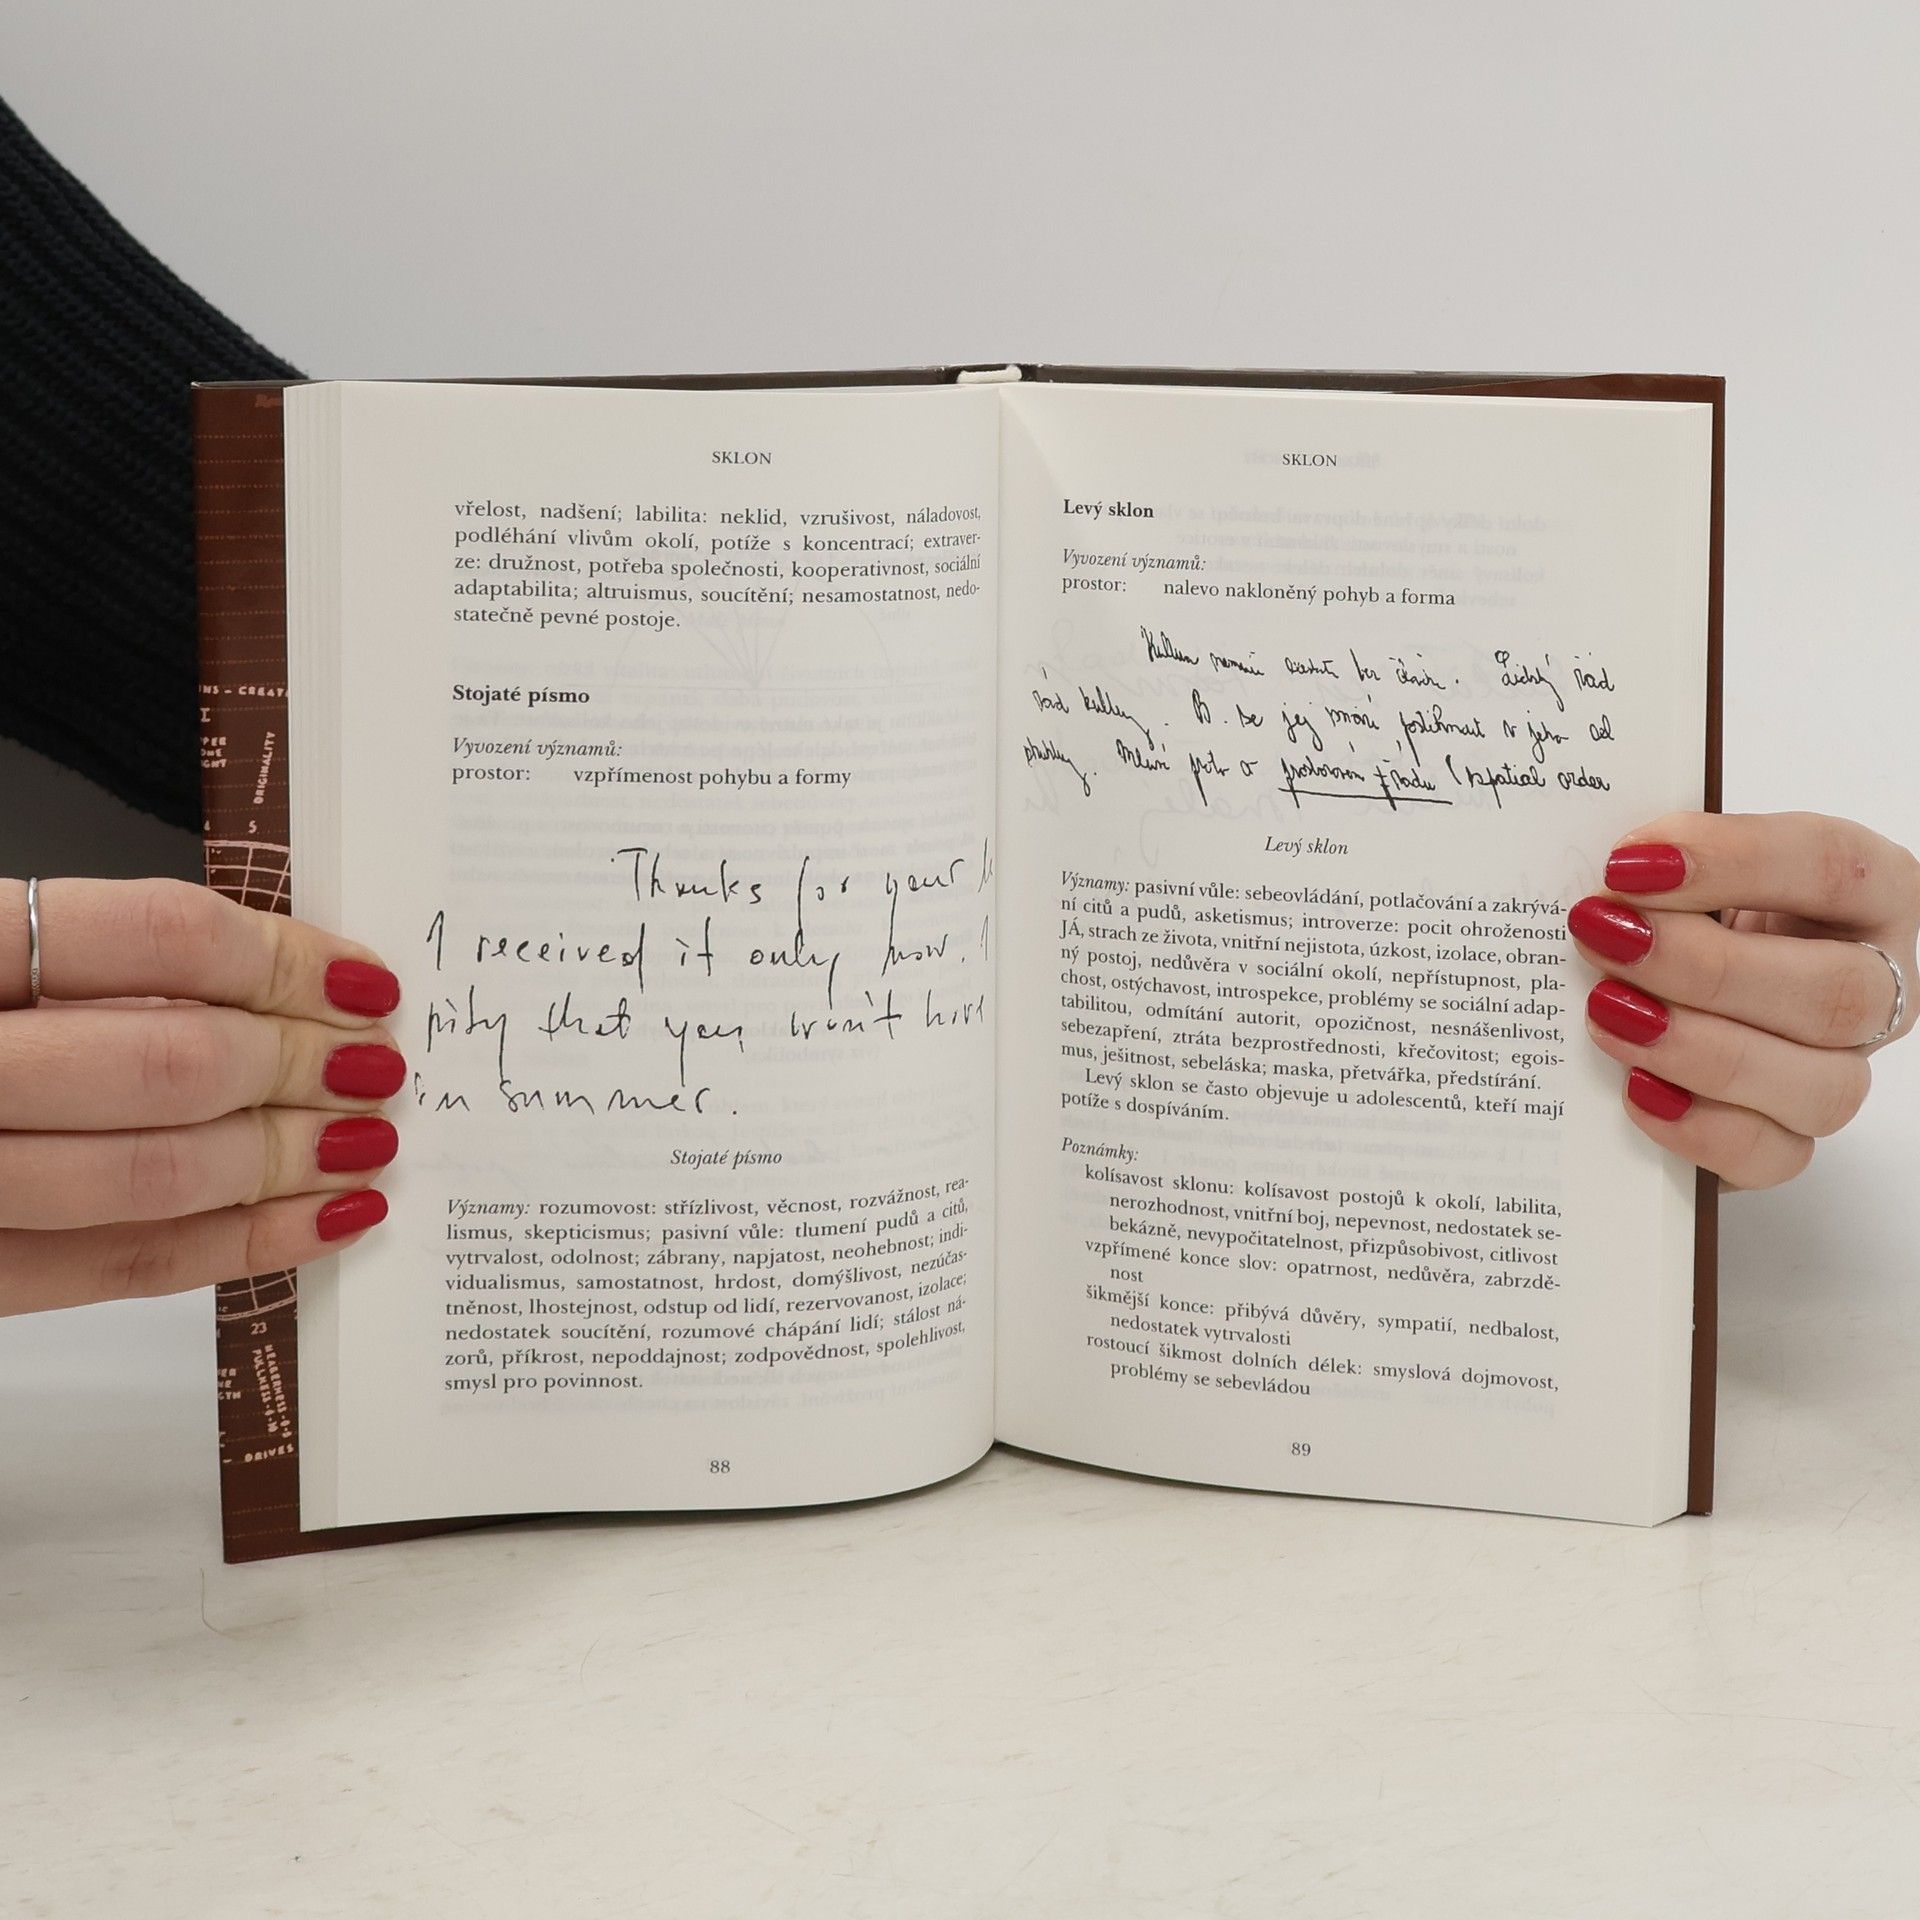 SKLON
vřelost, nadšení; labilita: neklid, vzrušivost, náladovost,
podléhání vlivům okolí, potíže s koncentrací; extraver-
ze: družnost, potřeba společnosti, kooperativnost, sociální
adaptabilita; altruismus, soucítění; nesamostatnost, nedo-
statečně pevné postoje.
Stojaté písmo
Vyvození významů:
prostor: vzpřímenost pohybu a formy
Thanks for your
I received it only now.
pity that you won't have
in summer.
Stojaté písmo
Významy: rozumovost: střízlivost, věcnost, rozvážnost, rea-
lismus, skepticismus; pasivní vůle: tlumení pudů a citů,
vytrvalost, odolnost; zábrany, napjatost, neohebnost; indi-
vidualismus, samostatnost, hrdost, domýšlivost, nezúčas-
tněnost, lhostejnost, odstup od lidí, rezervovanost, izolace;
nedostatek soucítění, rozumové chápání lidí; stálost ná-
zorů, příkrost, nepoddajnost; zodpovědnost, spolehlivost,
smysl pro povinnost.
88
SKLON
Levý sklon
Vyvození významů:
prostor: nalevo nakloněný pohyb a forma
bez . Lidský řád
řád kultury. B. se jej snaží postihnout v jeho od
. Mluví proto o prostorovém řádu (spatial order
Levý sklon
Významy: pasivní vůle: sebeovládání, potlačování a zakrývá-
ní citů a pudů, asketismus; introverze: pocit ohroženosti
JÁ, strach ze života, vnitřní nejistota, úzkost, izolace, obran-
ný postoj, nedůvěra v sociální okolí, nepřístupnost, pla-
chost, ostýchavost, introspekce, problémy se sociální adap-
tabilitou, odmítání autorit, opozičnost, nesnášenlivost,
sebezapření, ztráta bezprostřednosti, křečovitost; egois-
mus, ješitnost, sebeláska; maska, přetvářka, předstírání.
Levý sklon se často objevuje u adolescentů, kteří mají
potíže s dospíváním.
Poznámky:
kolísavost sklonu: kolísavost postojů k okolí, labilita,
nerozhodnost, vnitřní boj, nepevnost, nedostatek se-
bekázně, nevypočitatelnost, přizpůsobivost, citlivost
vzpřímené konce slov: opatrnost, nedůvěra, zabrzdě-
nost
šikmější konce: přibývá důvěry, sympatií, nedbalost,
nedostatek vytrvalosti
rostoucí šikmost dolních délek: smyslová dojmovost,
problémy se sebevládou
89
ORIGINALITY
5
23
DRIVES